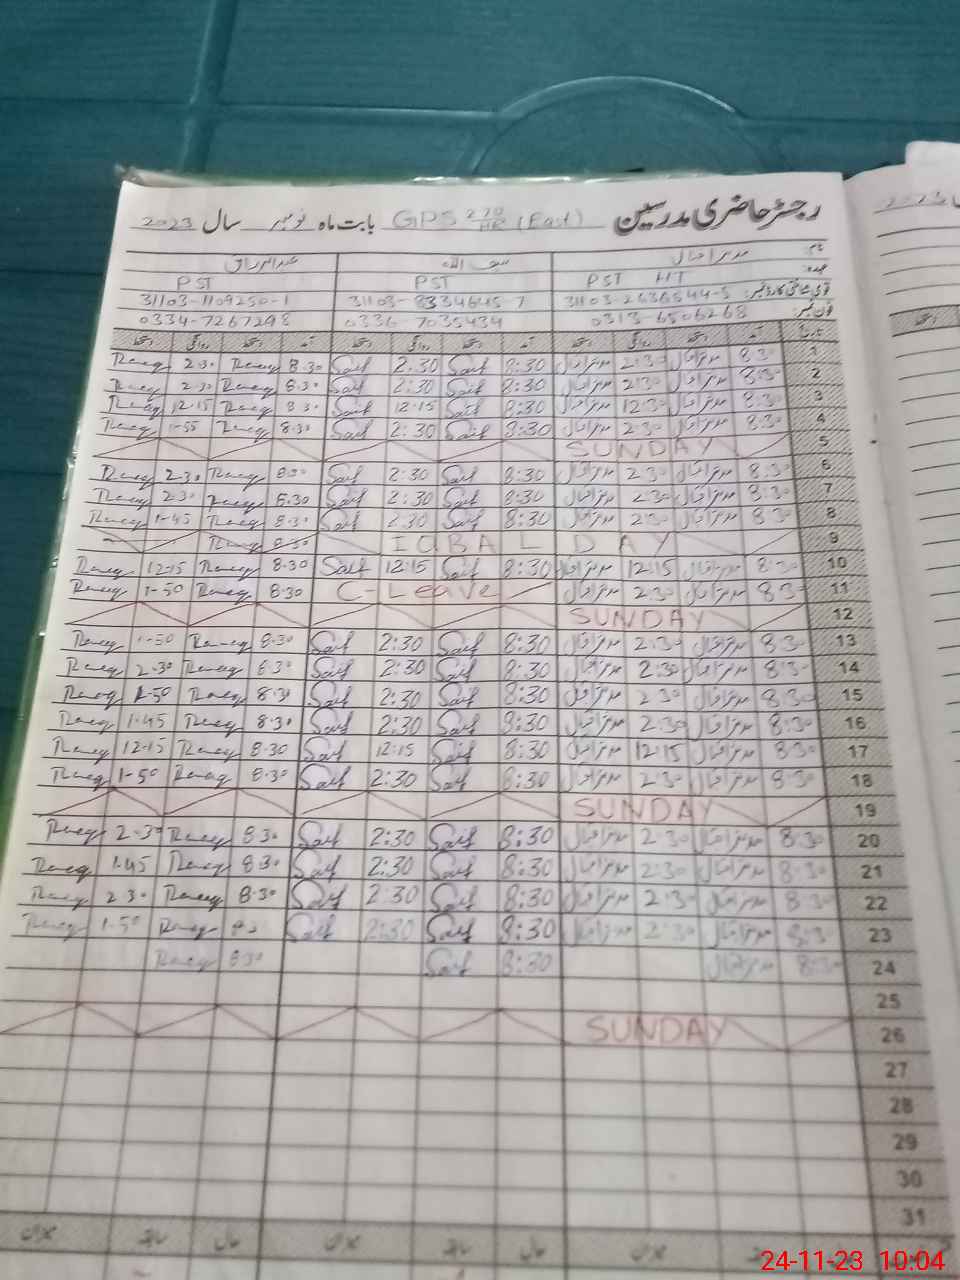 رجسٹر حاضری مدرسین GPS 270/HR (East) بابت ماہ نومبر سال 2023
نام: مدثر اقبال سیف اللہ عبدالرزاق
عہدہ: PST HT PST PST
قومی شناختی کارڈ نمبر: 31103-2636544-5 31103-8334645-7 31103-1109250-1
فون نمبر: 0313-6506268 0336-7035434 0334-7267298
تاریخ آمد دستخط روانگی دستخط آمد دستخط روانگی دستخط آمد دستخط روانگی دستخط
1 8:30 مدثر اقبال 2:30 مدثر اقبال 8:30 Saif 2:30 Saif 8.30 2.30
2 8:30 مدثر اقبال 2:30 مدثر اقبال 8:30 Saif 2:30 Saif 8.30 2.30
3 8:30 مدثر اقبال 12:30 مدثر اقبال 8:30 Saif 12:15 Saif 8.30 12.15
4 8:30 مدثر اقبال 2:30 مدثر اقبال 8:30 Saif 2:30 Saif 8.30 1-55
5 SUNDAY
6 8:30 مدثر اقبال 2:30 مدثر اقبال 8:30 Saif 2:30 Saif 8.30 2.30
7 8:30 مدثر اقبال 2:30 مدثر اقبال 8:30 Saif 2:30 Saif 8.30 2.30
8 8:30 مدثر اقبال 2:30 مدثر اقبال 8:30 Saif 2:30 Saif 8.30 1-45
9 IQBAL DAY 8.30
10 8:30 مدثر اقبال 12:15 مدثر اقبال 8:30 Saif 12:15 Saif 8.30 12-15
11 8:30 مدثر اقبال 2:30 مدثر اقبال C-Leave 8.30 1-50
12 SUNDAY
13 8:30 مدثر اقبال 2:30 مدثر اقبال 8:30 Saif 2:30 Saif 8.30 1-50
14 8:30 مدثر اقبال 2:30 مدثر اقبال 8:30 Saif 2:30 Saif 8.30 2.30
15 8:30 مدثر اقبال 2:30 مدثر اقبال 8:30 Saif 2:30 Saif 8.30 1-50
16 8:30 مدثر اقبال 2:30 مدثر اقبال 8:30 Saif 2:30 Saif 8.30 1-45
17 8:30 مدثر اقبال 12:15 مدثر اقبال 8:30 Saif 12:15 Saif 8-30 12-15
18 8:30 مدثر اقبال 2:30 مدثر اقبال 8:30 Saif 2:30 Saif 8.30 1-50
19 SUNDAY
20 8:30 مدثر اقبال 2:30 مدثر اقبال 8:30 Saif 2:30 Saif 8.30 2-30
21 8:30 مدثر اقبال 2:30 مدثر اقبال 8:30 Saif 2:30 Saif 8.30 1.45
22 8:30 مدثر اقبال 2:30 مدثر اقبال 8:30 Saif 2:30 Saif 8.30 2.30
23 8:30 مدثر اقبال 2:30 مدثر اقبال 8:30 Saif 2:30 Saif 1-50
24 8:30 مدثر اقبال 8:30 Saif 8.30
25
26 SUNDAY
27
28
29
30
31
حال سابقہ میزان حال سابقہ میزان
24-11-23 10:04